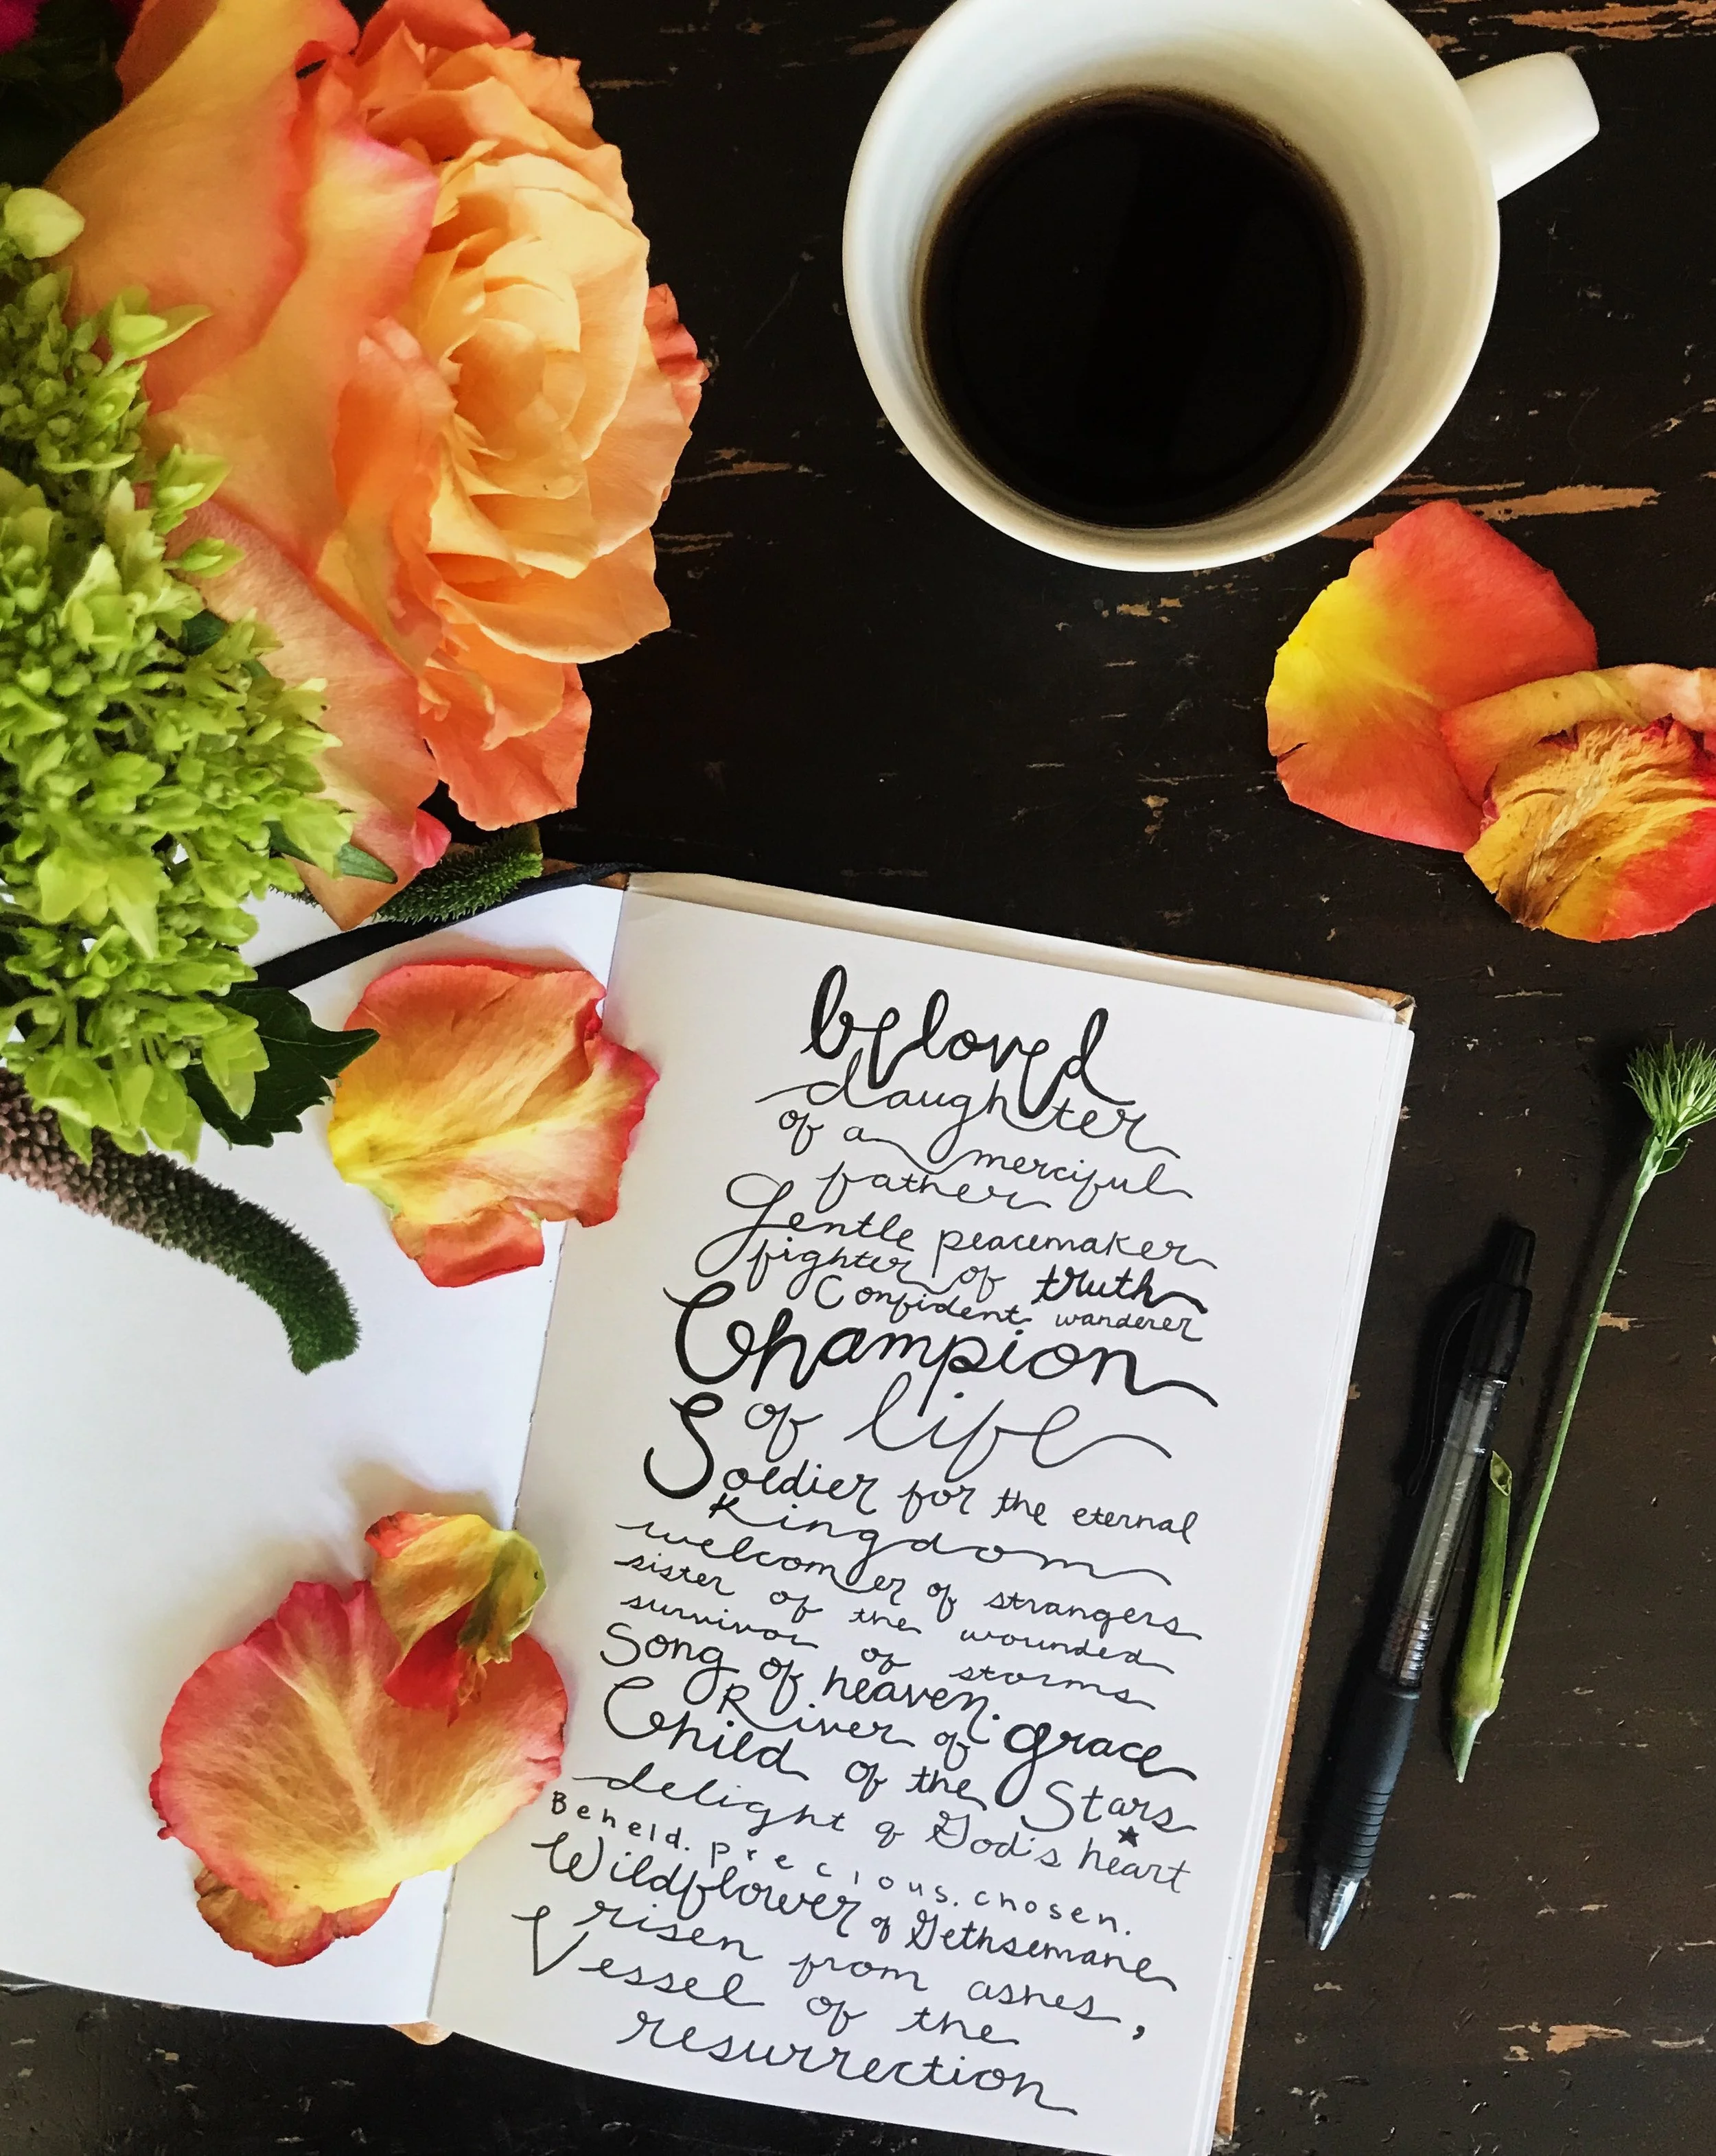 beloved
daughter
of a merciful
father
Gentle peacemaker
fighter of truth
Confident wanderer
Champion
of life
Soldier for the eternal
Kingdom
welcomer of strangers
sister of the wounded
survivor of storms
Song of heaven.
River of grace
Child of the Stars
delight of God's heart
Beheld. precious. chosen.
Wildflower of Gethsemane
risen from ashes,
Vessel of the
resurrection